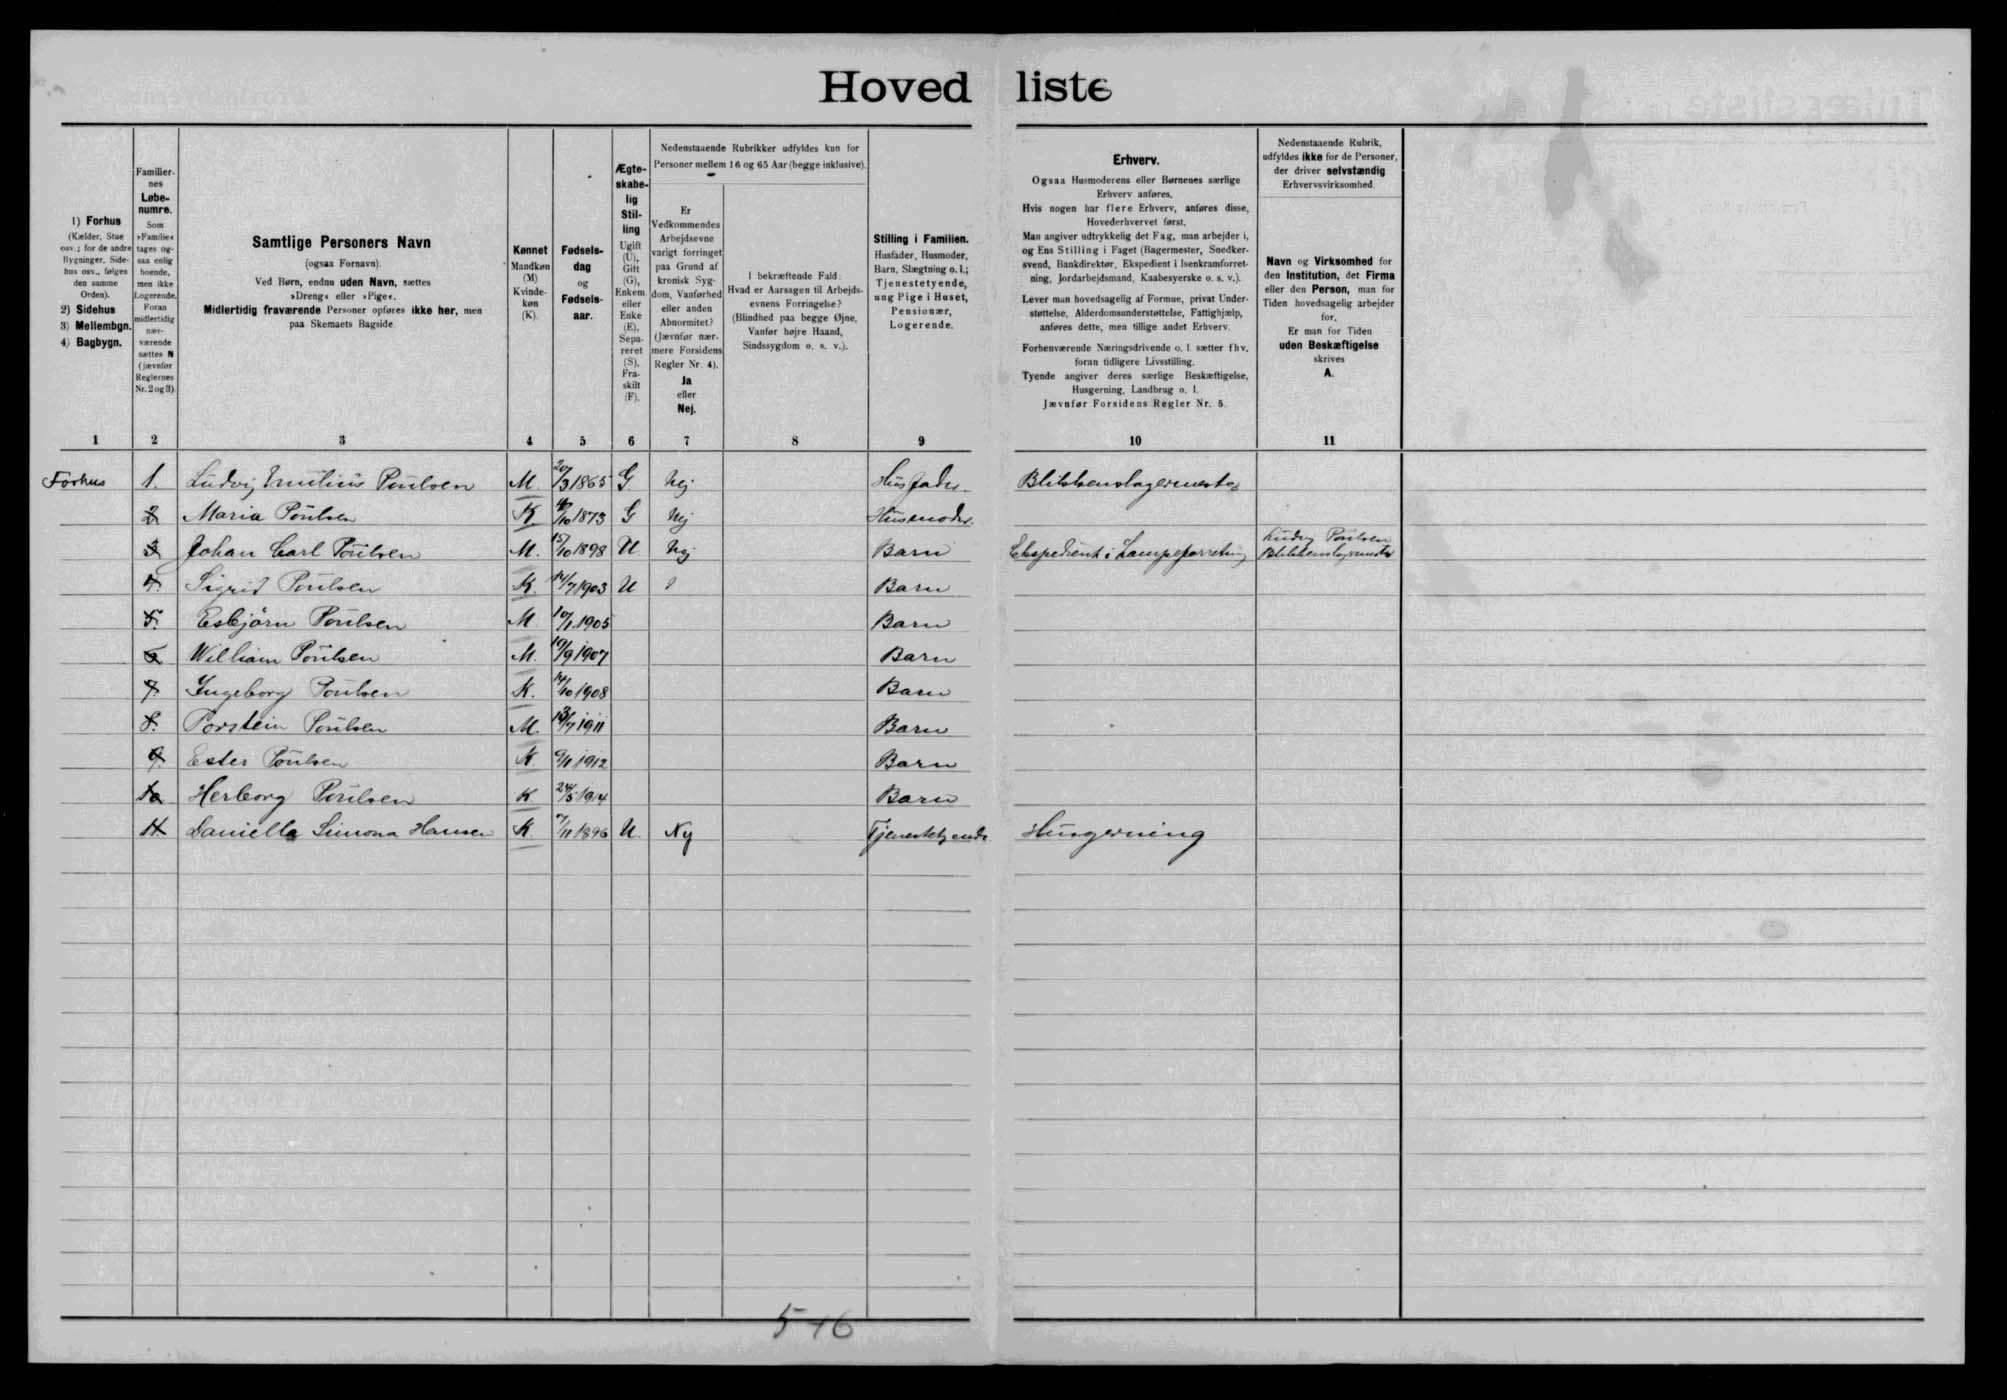 Hovedliste
1) Forhus
(Kælder, Stue
osv.; for de andre
Bygninger, Side-
hus osv., følges
den samme
Orden).
2) Sidehus
3) Mellembgn.
4) Bagbygn.
1
Familier-
nes
Løbe-
numre.
Som
»Familie«
tages og-
saa enlig
boende,
men ikke
Logerende.
Foran
midlertidig
nær-
værende
sættes N
(jævnfør
Reglernes
Nr. 2 og 3).
2
Samtlige Personers Navn
(ogsaa Fornavn).
Ved Børn, endnu uden Navn, sættes
»Dreng« eller »Pige«.
Midlertidig fraværende Personer opføres ikke her, men
paa Skemaets Bagside.
3
Kønnet
Mandkøn
(M)
Kvinde-
køn
(K).
4
Fødsels-
dag
og
Fødsels-
aar.
5
Ægte-
skabe-
lig
Stil-
ling
Ugift
(U),
Gift
(G),
Enkem.
eller
Enke
(E),
Sepa-
reret
(S),
Fra-
skilt
(F).
6
Nedenstaaende Rubrikker udfyldes kun for
Personer mellem 16 og 65 Aar (begge inklusive).
Er
Vedkommendes
Arbejdsevne
varigt forringet
paa Grund af
kronisk Syg-
dom, Vanførhed
eller anden
Abnormitet?
(Jævnfør nær-
mere Forsidens
Regler Nr. 4).
Ja
eller
Nej.
7
I bekræftende Fald:
Hvad er Aarsagen til Arbejds-
evnens Forringelse?
(Blindhed paa begge Øjne,
Vanfør højre Haand,
Sindssygdom o. s. v.).
8
Stilling i Familien.
Husfader, Husmoder,
Barn, Slægtning o. l.;
Tjenestetyende,
ung Pige i Huset,
Pensionær,
Logerende.
9
Erhverv.
Ogsaa Husmoderens eller Børnenes særlige
Erhverv anføres.
Hvis nogen har flere Erhverv, anføres disse,
Hovederhvervet først.
Man angiver udtrykkelig det Fag, man arbejder i,
og Ens Stilling i Faget (Bagermester, Snedker-
svend, Bankdirektør, Ekspedient i Isenkramforret-
ning, Jordarbejdsmand, Kaabesyerske o. s. v.).
Lever man hovedsagelig af Formue, privat Under-
støttelse, Alderdomsunderstøttelse, Fattighjælp,
anføres dette, men tillige andet Erhverv.
Forhenværende Næringsdrivende o. l. sætter fhv.
foran tidligere Livsstilling.
Tyende angiver deres særlige Beskæftigelse,
Husgerning, Landbrug o. l.
Jævnfør Forsidens Regler Nr. 5.
10
Nedenstaaende Rubrik,
udfyldes ikke for de Personer,
der driver selvstændig
Erhvervsvirksomhed.
Navn og Virksomhed for
den Institution, det Firma
eller den Person, man for
Tiden hovedsagelig arbejder
for.
Er man for Tiden
uden Beskæftigelse
skrives
A.
11
Forhus 1. Ludvig Emilius Poulsen M. 20/3 1865 G Nej Husfader. Blikkenslagermester
2 Maria Poulsen K 1873 G Nej Husmoder.
3 Johan Carl Poulsen M. 15/10 1898 U Nej Barn Ekspedient i Lampeforretning Ludvig Poulsen Blikkenslagermester
4. Sigrid Poulsen K. 14/7 1903 U Barn
5. Esbjörn Poulsen M. 10/1 1905 Barn
6 William Poulsen M. 19/9 1907 Barn
7. Ingeborg Poulsen K. 14/10 1908 Barn
8. Torstein Poulsen M. 1911 Barn
9. Ester Poulsen K. 9/11 1912 Barn
10 Herborg Poulsen K 24/5 1914 Barn
11 Daniella Simona Hansen K. 7/11 1896 U. Nej Tjenestetyende Husgerning
5+6